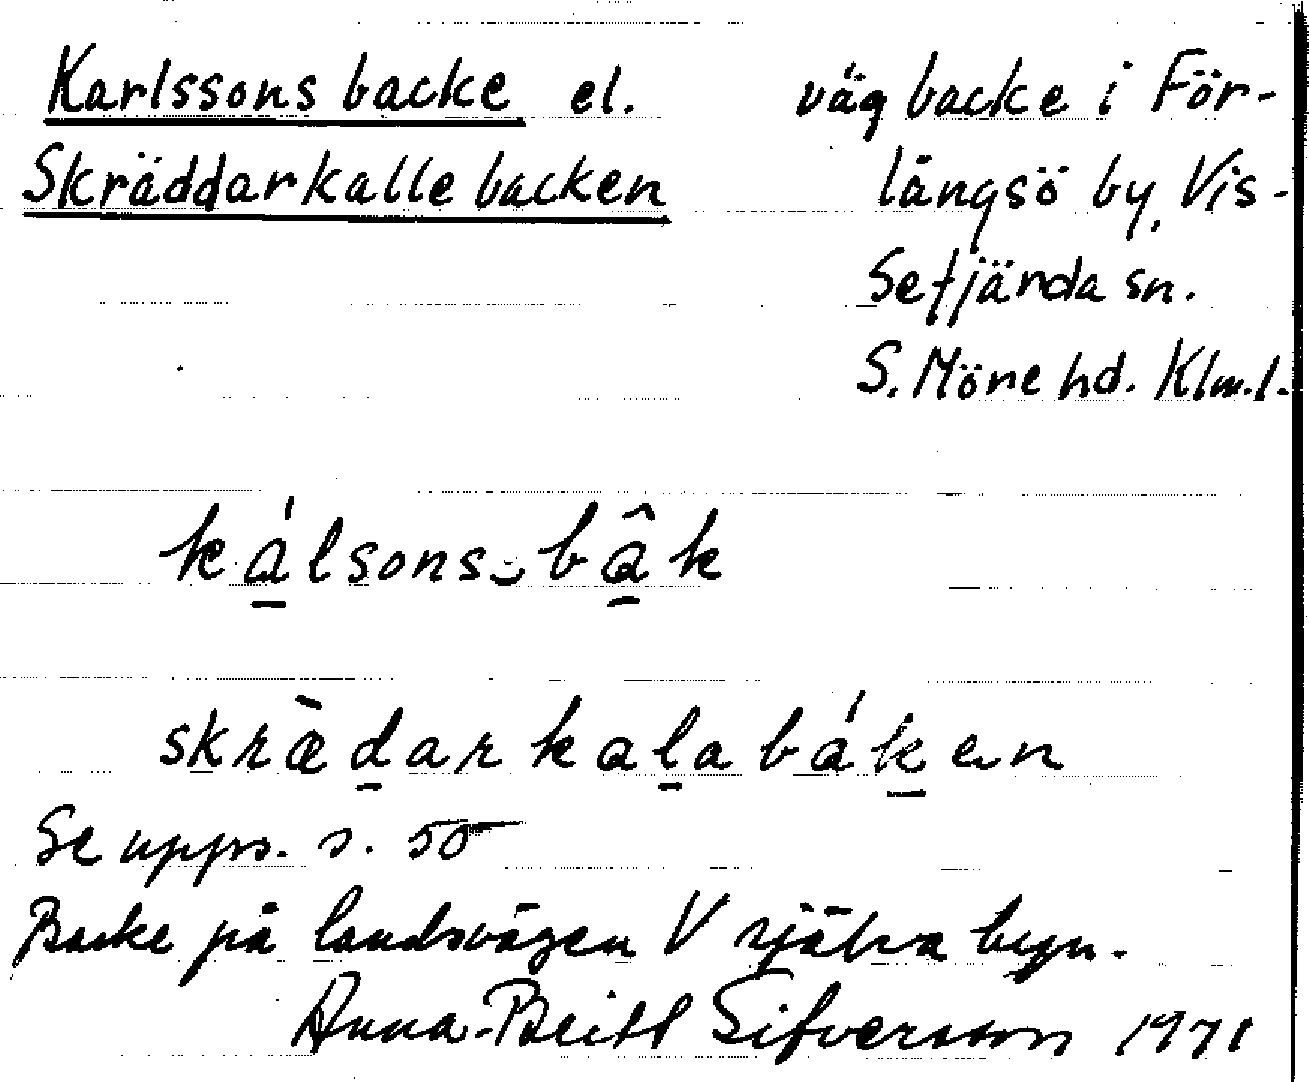 Karlssons backe el. vägbacke i För-
Skräddarkallebacken längsö by, Vis-
sefjärda sn.
S. Möre hd. Klm.l.
kálsons‿bâk
skrædarkalabáken
Se upps. s. 50
Backe på landsvägen V själva byn.
Anna-Britt Sifversson 1971